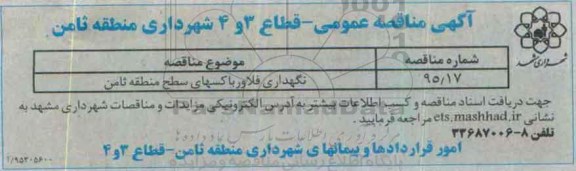 آگهی مناقصه عمومی-قطاع ۳و ۴ شهرداری منطقه ثامن
شهرداری مشهد
شماره مناقصه
موضوع مناقصه
۹۵٫۱۷
نگهداری فلاورباکسهای سطح منطقه ثامن
جهت دریافت اسناد مناقصه و کسب اطلاعات بیشتر به آدرس الکترونیکی مزایدات و مناقصات شهرداری مشهد به
نشانی ets.mashhad.ir مراجعه فرمایید.
تلفن ۸-۳۳۶۸۷۰۰۶
امور قراردادها و پیمانهای شهرداری منطقه ثامن-قطاع ۳و۴